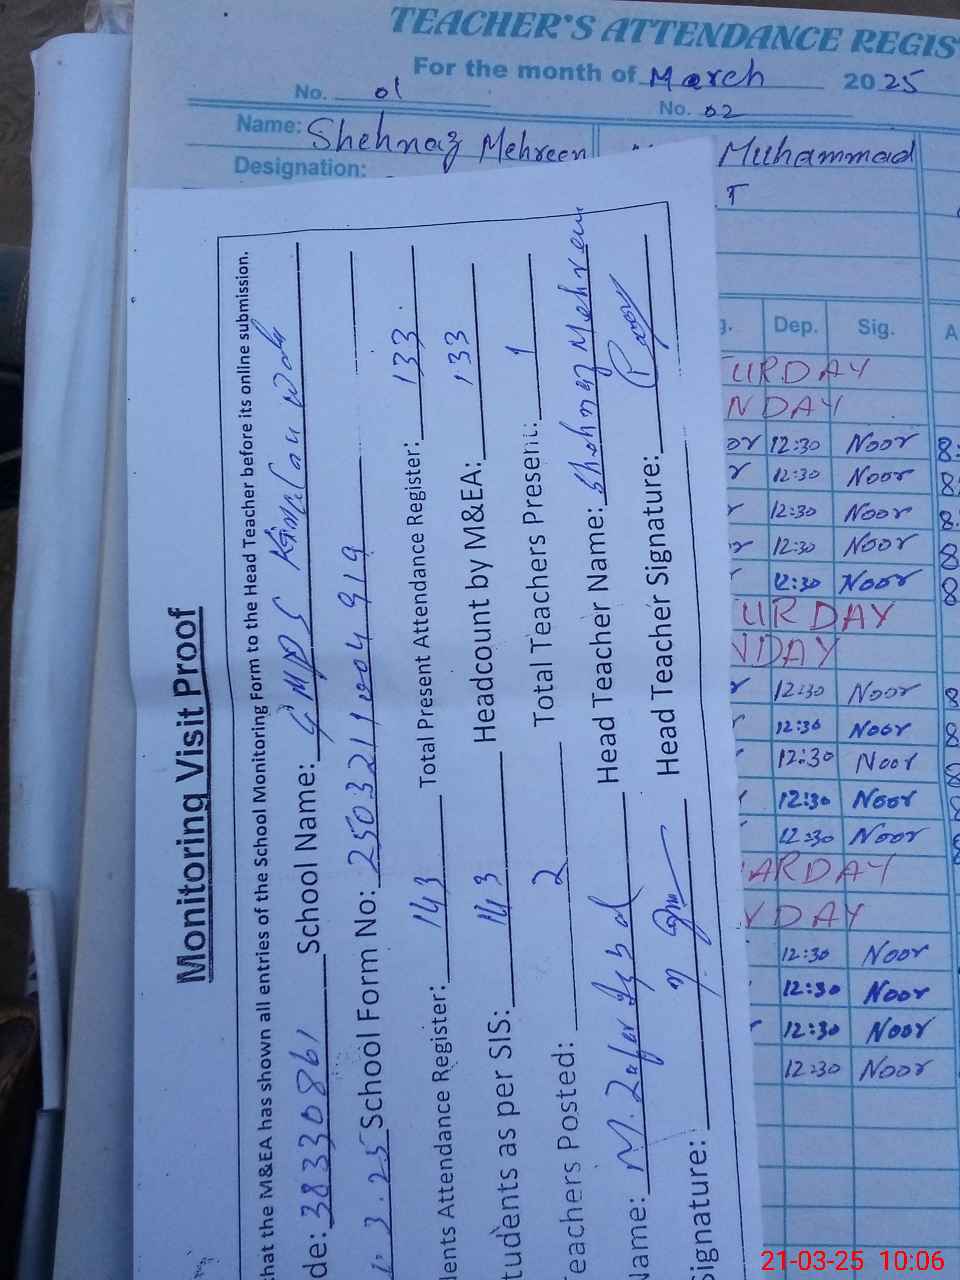 TEACHER'S ATTENDANCE REGIS
For the month of March 2025
No. 01
No. 02
Name: Shehnaz Mehreen
Muhammad
Designation:
T
Monitoring Visit Proof
that the M&EA has shown all entries of the School Monitoring Form to the Head Teacher before its online submission.
de: 38330861 School Name: GMPS
3.25 School Form No: 2503211004919
dents Attendance Register: 143 Total Present Attendance Register: 133
tudents as per SIS: 143 Headcount by M&EA: 133
Teachers Posted: 2 Total Teachers Present: 1
Name: M. Zafar Iqbal Head Teacher Name: Shehnaz Mehreen
Signature: Head Teacher Signature:
g. Dep. Sig. A
URDAY
NDAY
or 12:30 Noor 8:
r 12:30 Noor 8
r 12:30 Noor 8.
or 12:30 Noor 8
r 12:30 Noor 8
URDAY
NDAY
r 12:30 Noor 8
12:30 Noor 8
12:30 Noor 8
12:30 Noor 8
12:30 Noor 8
ARDAY
YDAY
12:30 Noor
12:30 Noor
r 12:30 Noor
12:30 Noor
21-03-25 10:06